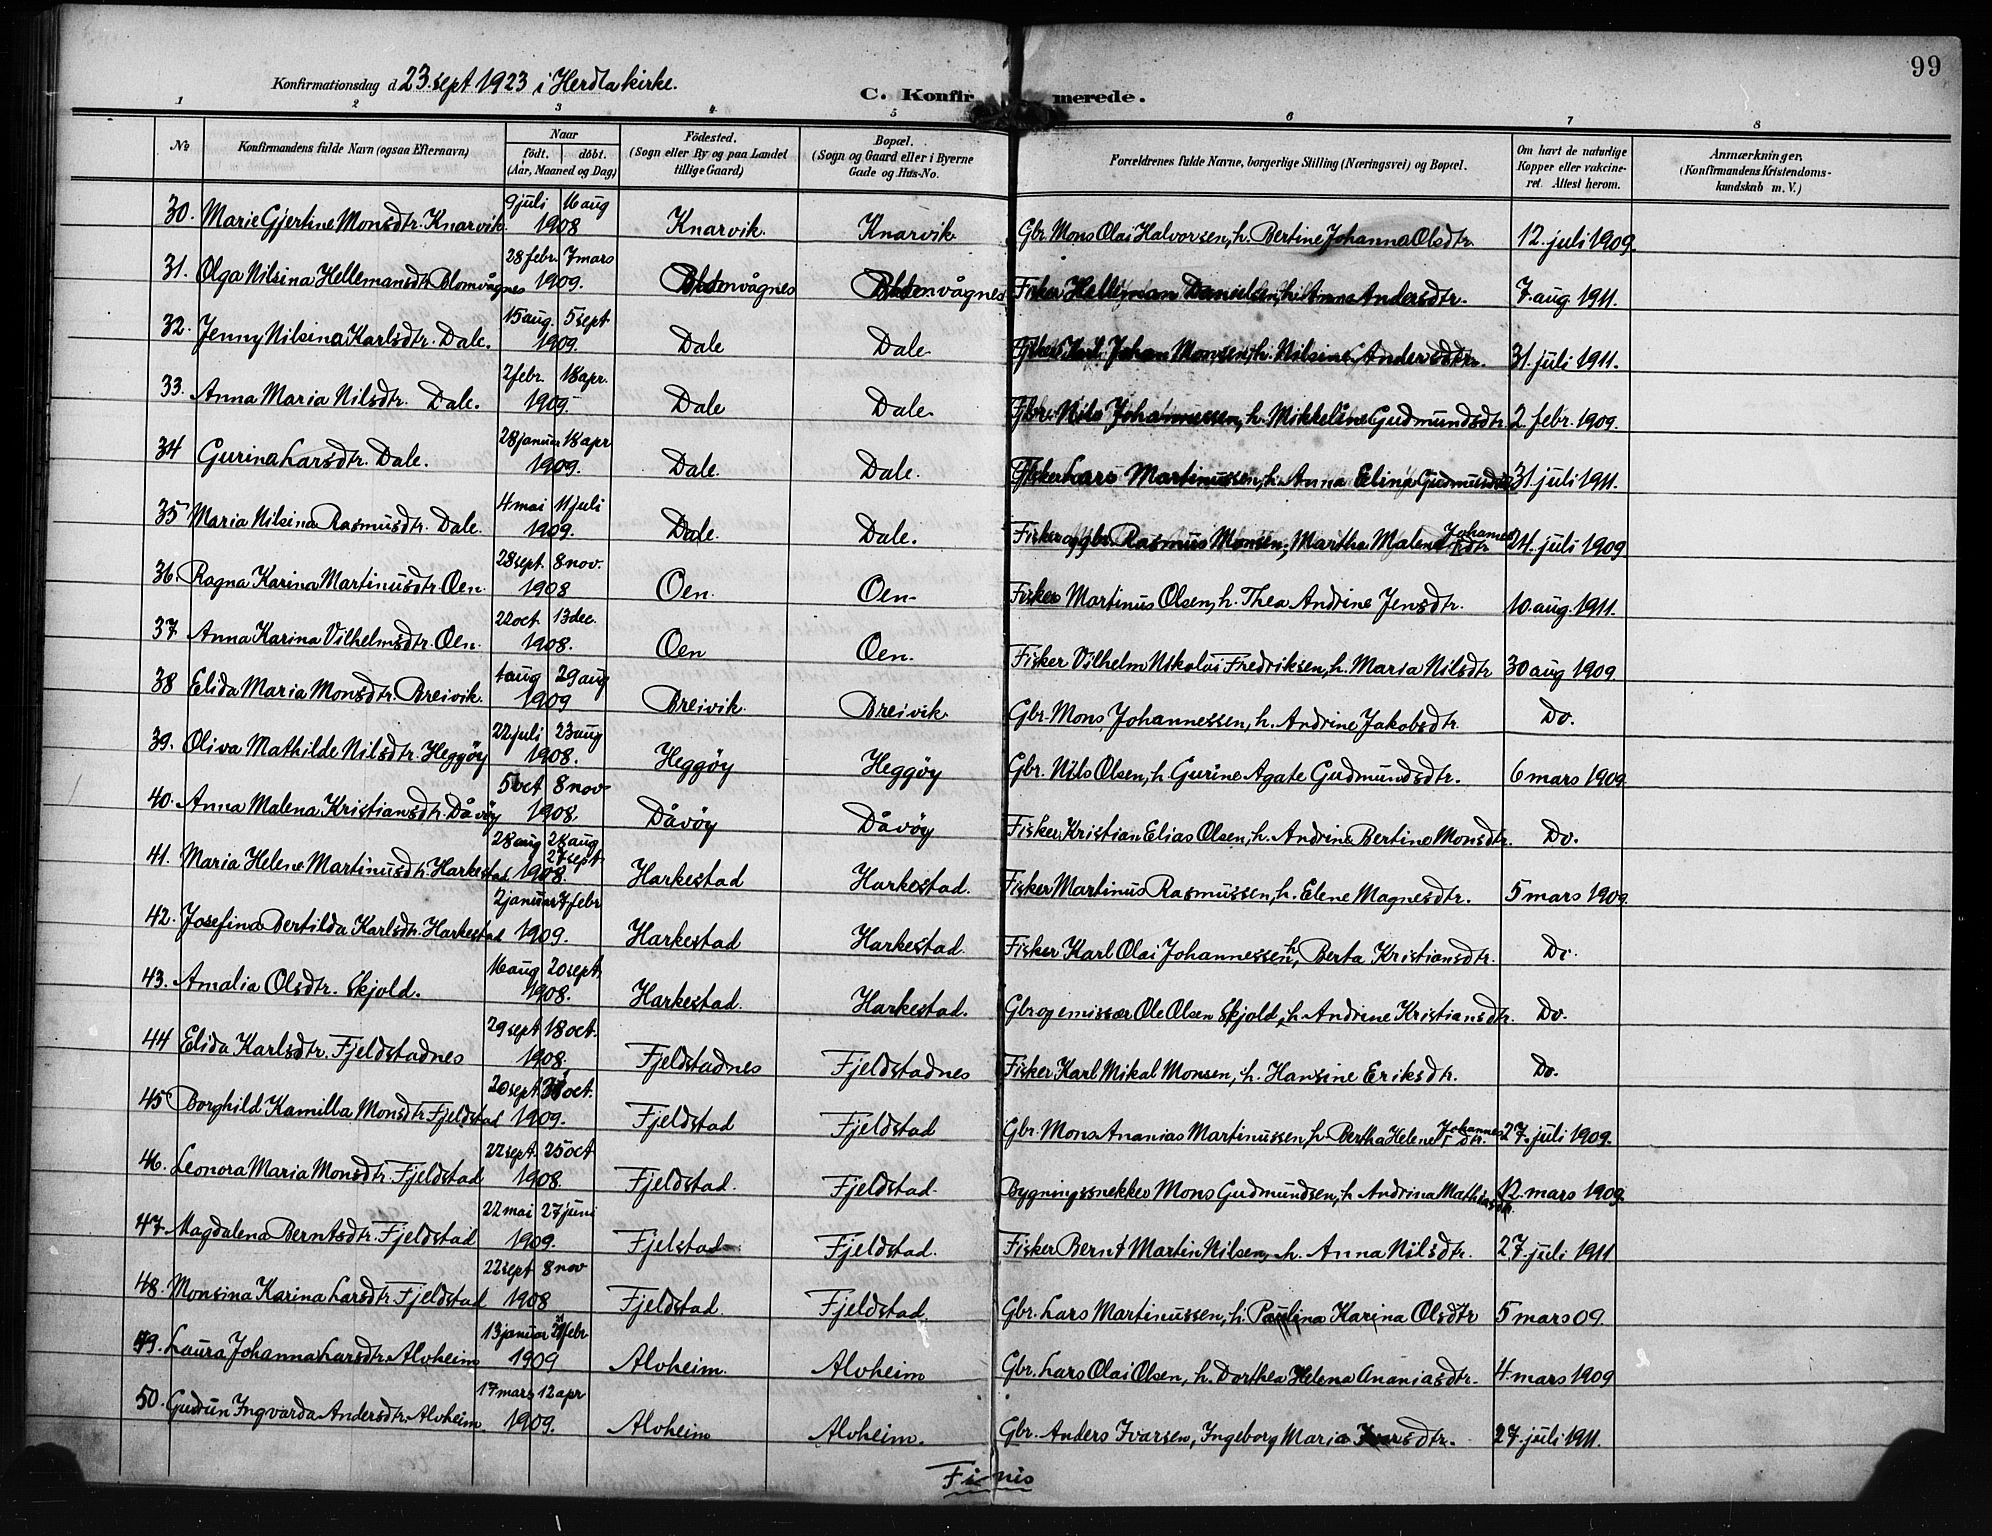 99
Konfirmationsdag d. 23. sept 1923 i Herdla kirke.
C. Konfirmerede.
1 2 3 4 5 6 7 8
No Konfirmandens fulde Navn (ogsaa Efternavn) Naar födt. döbt. (Aar, Maaned og Dag) Födested. (Sogn eller By og paa Landet tillige Gaard) Bopæl. (Sogn og Gaard eller i Byerne Gade og Hus-No. Forældrenes fulde Navne, borgerlige Stilling (Næringsvei) og Bopæl. Om havt de naturlige Kopper eller vakcineret. Attest herom. Anmærkninger. (Konfirmandens Kristendomskundskab m. V.)
30. Marie Gjertine Monsdtr. Knarvik. 9 juli 16 aug 1908 Knarvik. Knarvik Gbr. Mons Olai Halvorsen, h. Bertine Johanna Olsdtr. 12. juli 1909.
31. Olga Nilsina Hellemansdtr. Blomvågnes 28 febr. 7 mars 1909. Blomvågnes Blomvågnes Fisker Helleman Danielsen, h. Anna Andersdtr. 7. aug 1911.
32. Jenny Nilsina Karlsdtr. Dale. 15 aug. 5 sept 1909. Dale Dale Fisker Karl Johan Monsen, h. Nilsine Andersdtr. 31. juli 1911.
33. Anna Maria Nilsdtr. Dale. 2 febr. 18 apr. 1909. Dale Dale. Gbr. Nils Johannussen, h. Mikkeline Gudmundsdtr. 2. febr. 1909.
34 Gurina Larsdtr. Dale. 28 januar 18 apr 1909. Dale. Dale. Fisker Lars Martinussen, h. Anna Elina Gudmundsdtr 31. juli 1911.
35 Maria Nilsina Rasmusdtr. Dale. 4 mai 11 juli 1909. Dale. Dale. Fisker og gbr. Rasmus Monsen, Martha Malena Johannesdtr 24. juli 1909
36. Ragna Karina Martinusdtr. Oen. 28 sept. 8 nov. 1908 Oen. Oen. Fisker Martinus Olsen, h. Thea Andrine Jensdtr. 10. aug. 1911.
37. Anna Karina Vilhelmsdtr. Oen. 22 oct. 13 dec. 1908. Oen Oen. Fisker Vilhelm Nikolai Fredriksen, h. Maria Nilsdtr 30 aug 1909.
38 Elida Maria Monsdtr. Breivik. 1 aug 29 aug 1909 Breivik. Breivik. Gbr. Mons Johannessen, h. Andrine Jakobsdtr. Do.
39. Oliva Mathilde Nilsdtr. Heggöy 22 juli 23 aug 1908. Heggöy Heggöy Gbr. Nils Olsen, h. Gurine Agate Gudmundsdtr. 6 mars 1909.
40. Anna Malena Kristiansdtr. Dåvöy 5 oct 8 nov 1908. Dåvöy Dåvöy Fisker Kristian Elias Olsen, h. Andrine Bertine Monsdtr. Do.
41. Maria Helene Martinusdtr. Harkestad 28 aug 28 aug 27 sept 1908. Harkestad Harkestad. Fisker Martinus Rasmussen, h. Elene Magnesdtr. 5 mars 1909.
42. Josefina Bertilda Karlsdtr. Harkestad 2 januar 7 febr 1909. Harkestad Harkestad. Fisker Karl Olai Johannessen, h. Berta Kristiansdtr. Do.
43. Amalia Olsdtr. Skjold. 16 aug 20 sept. 1908. Harkestad. Harkestad. Gbr. og emissær Ole Olsen Skjold, h. Andrine Kristiansdtr. Do.
44 Elida Karlsdtr. Fjeldstadnes 29 sept 18 oct. 1908. Fjeldstadnes Fjeldstadnes Fisker Karl Mikal Monsen, h. Hansine Eriksdtr. Do.
45 Borghild Kamilla Monsdtr. Fjeldstad 20 sept oct. 1909. Fjeldstad Fjeldstad Gbr. Mons Ananias Martinussen, h. Bertha Helene Johannesdtr. 27. juli 1909.
46. Leonora Maria Monsdtr. Fjeldstad 22 sept. 25 oct 1908. Fjeldstad. Fjeldstad. Bygningssnekker Mons Gudmundsen, h. Andrina Mathiasdtr. 12. mars 1909.
47. Magdalena Berntsdtr. Fjeldstad 22 mai 27 juni 1909. Fjelstad Fjeldstad. Fisker Bernt Martin Nilsen, h. Anna Nilsdtr. 27. juli 1911
48. Monsina Karina Larsdtr. Fjeldstad 22 sept 8 nov 1908 Fjeldstad. Fjeldstad. Gbr. Lars Martinussen, h. Paulina Karina Olsdtr 5 mars 09.
49. Laura Johanna Larsdtr. Alvheim 13 januar febr 1909 Alvheim. Alvheim Gbr. Lars Olai Olsen, h. Dorthea Helena Ananiasdtr. 4. mars 1909
50. Gudrun Ingvarda Andersdtr. Alvheim. 17 mars 12 apr 1909. Alvheim Alvheim. Gbr. Anders Ivarsen, Ingeborg Maria Ivarsdtr. 27. juli 1911.
Finis